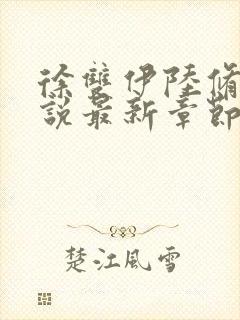 徐雙伊陸脩
說最新章節
楚江風雪